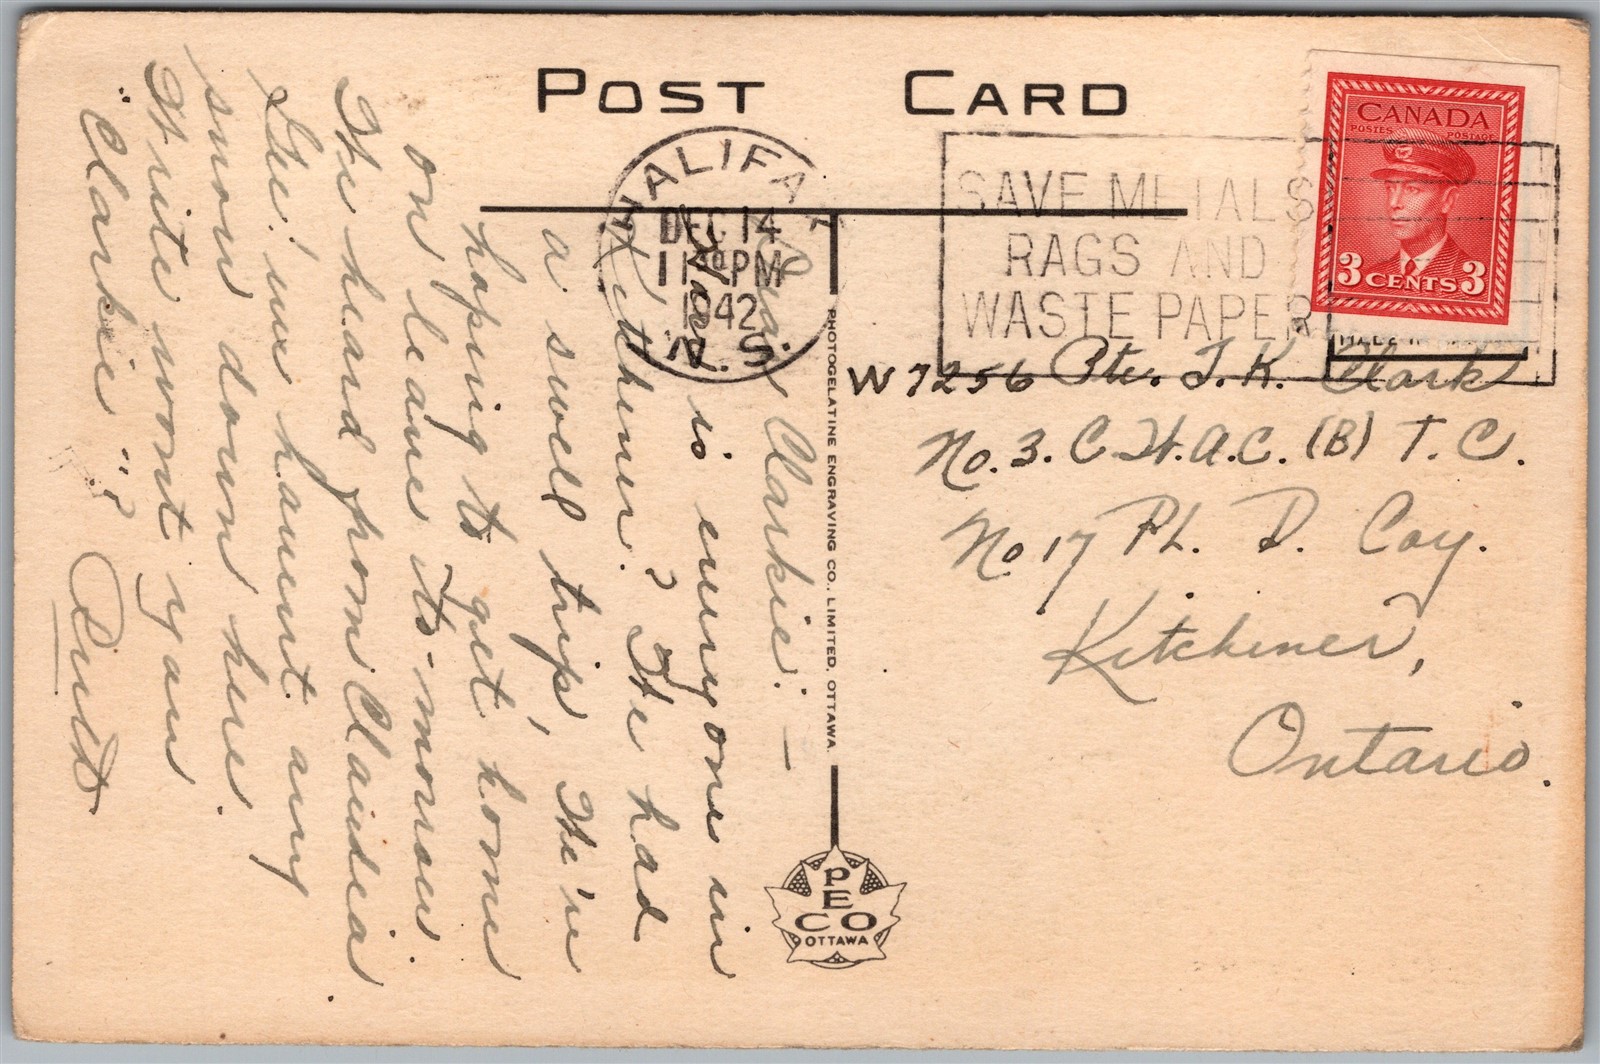 POST CARD
HALIFAX
DEC 14
11 PM
1942
N.S.
SAVE METALS
RAGS AND
WASTE PAPER
CANADA
POSTES POSTAGE
3 CENTS 3
W7256 Pte. J. K. Clark
No. 3. C.W.A.C. (B) T. C.
No 17 Pl. D. Coy.
Kitchener,
Ontario.
Dear Clarkie: —
How is everyone in
Kitchener? We had
a swell trip, We're
hoping to get home
on leave to-morrow.
We heard from Claudia.
Gee! we haven't any
snow down here.
Write wont you
"Clarkie"?
PHOTOGELATINE ENGRAVING CO., LIMITED, OTTAWA.
PECO
OTTAWA